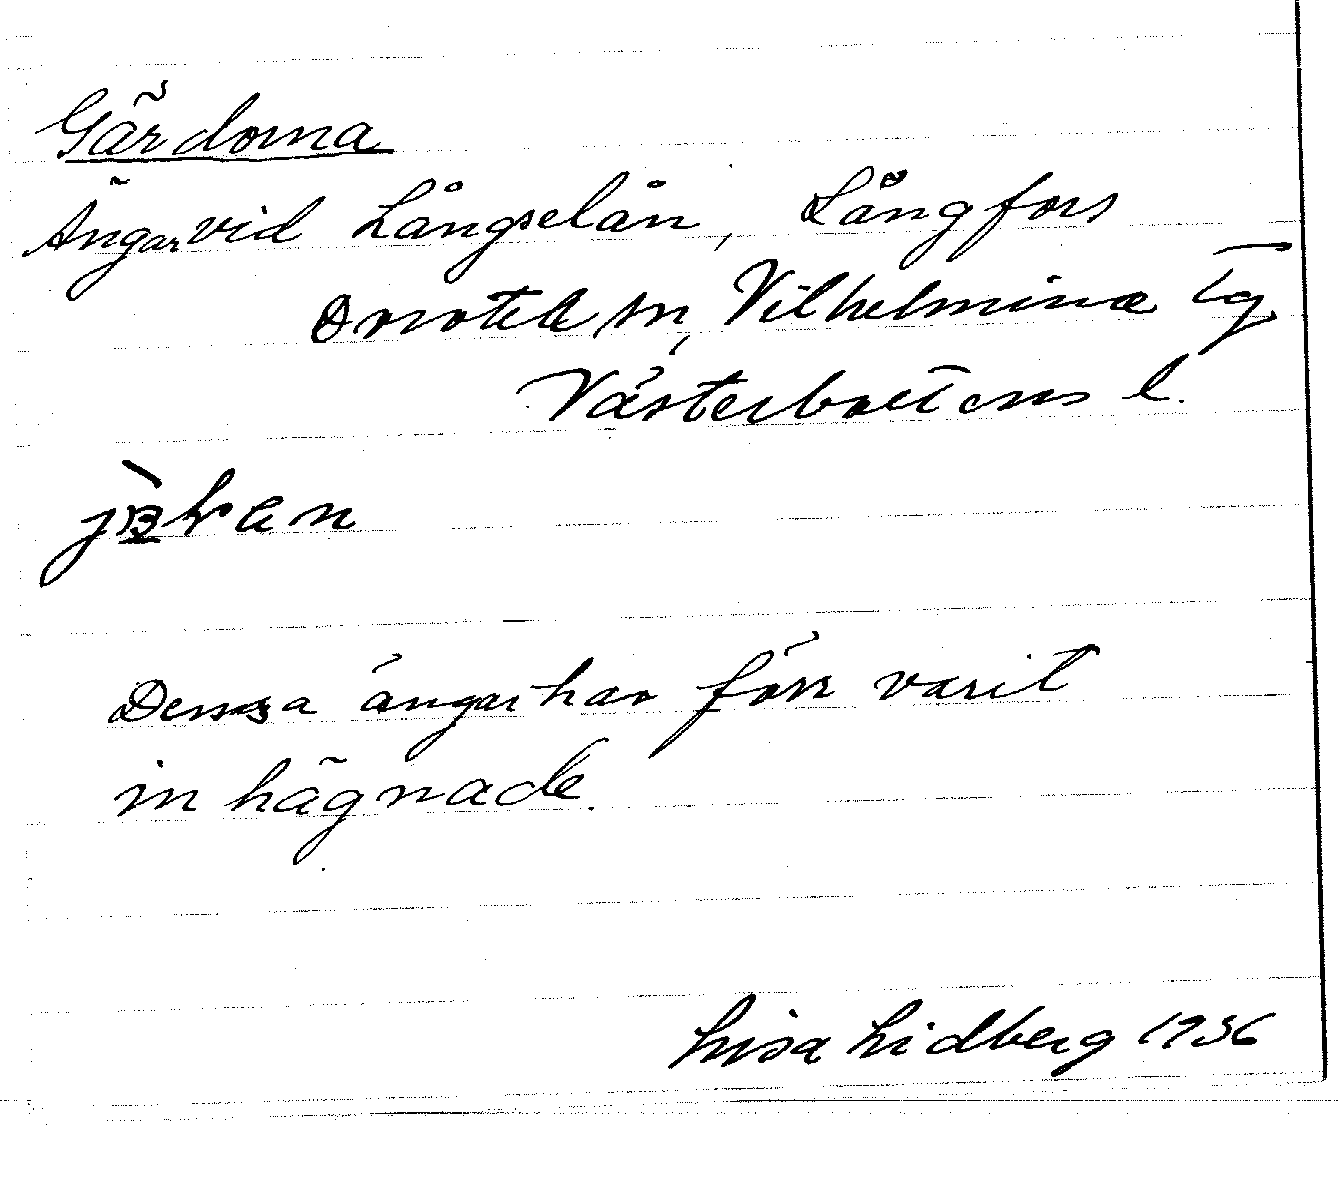 Gärdorna
Ängar vid Långselån, Långfors
Vilhelmina Tg
Västerbottens l.
Dessa ängar har förr varit
in hägnade.
Lisa Lidberg 1936